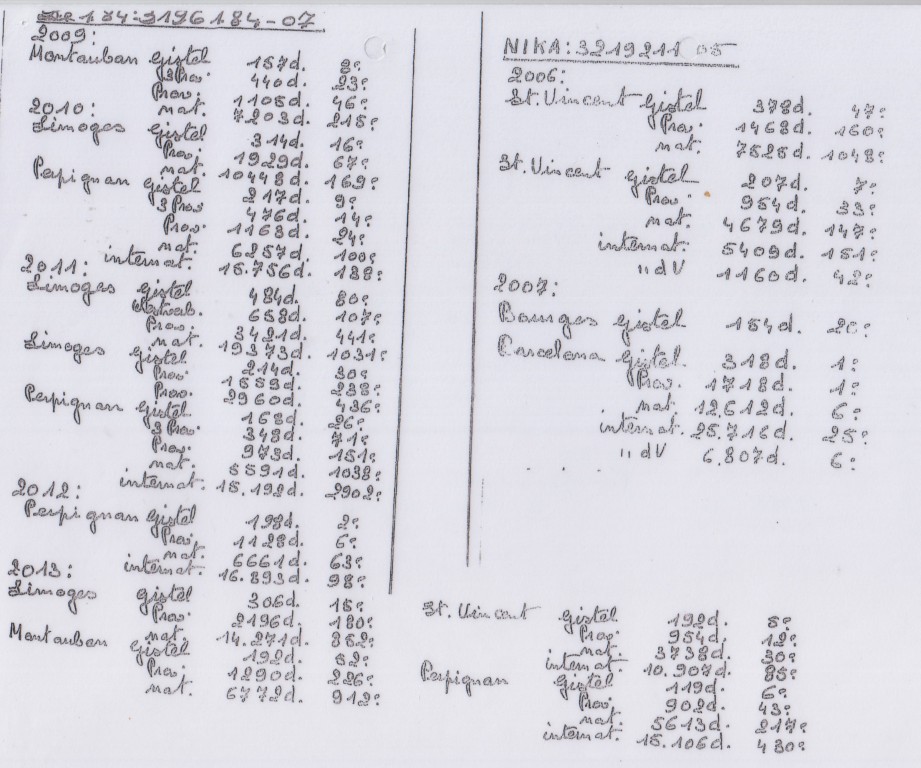 De 184: 3196184-07
2009:
Montauban Gistel 157d. 8e
3 Prov. 440d. 23e
Prov. 1105d. 46e
nat. 7203d. 215e
2010:
Limoges Gistel 314d. 16e
Prov. 1929d. 67e
nat. 10448d. 169e
Perpignan Gistel 217d. 9e
3 Prov 476d. 14e
Prov. 1163d. 24e
nat. 6257d. 100e
internat. 15.756d. 188e
2011:
Limoges Gistel 484d. 80e
658d. 107e
Prov. 3421d. 441e
nat. 19373d. 1031e
Limoges Gistel 214d. 30e
Prov. 1559d. 238e
Prov. 2960d. 436e
Perpignan Gistel 168d. 26e
3 Prov. 348d. 71e
Prov. 973d. 151e
nat. 5591d. 1038e
internat. 15.192d. 2902e
2012:
Perpignan Gistel 198d. 2e
Prov. 1128d. 6e
nat. 6661d. 63e
internat. 16.893d. 98e
2013:
Limoges Gistel 306d. 15e
Prov. 2196d. 180e
nat. 14.271d. 862e
Montauban Gistel 192d. 52e
Prov. 1290d. 226e
nat. 6772d. 912e
NIKA: 3219211 05
2006:
St. Vincent Gistel 378d. 47e
Prov. 1468d. 160e
nat. 7525d. 1048e
St. Vincent Gistel 207d. 7e
Prov. 954d. 33e
nat. 4679d. 147e
internat. 5409d. 151e
" dV 1160d. 42e
2007:
Bourges Gistel 154d. 20e
Barcelona Gistel 318d. 1e
Prov. 1718d. 1e
nat 12.612d. 6e
internat. 25.716d. 25e
" dV 6.807d. 6e
St. Vincent Gistel 192d. 5e
Prov. 954d. 12e
nat. 3738d. 30e
internat. 10.907d. 85e
Perpignan Gistel 119d. 6e
Prov. 902d. 43e
nat. 5613d. 217e
internat. 15.106d. 430e